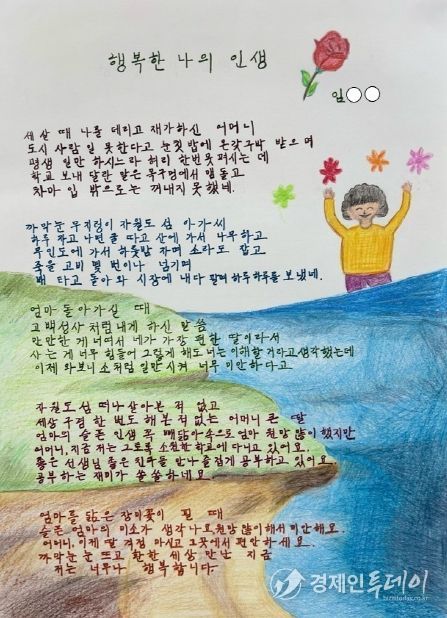 행복한 나의 인생
임○○
세살 때 나를 데리고 재가하신 어머니
도시 사람 일 못한다고 눈칫밥에 온갖 구박 받으며
평생 일만 하시느라 허리 한번 못 펴시는 데
학교 보내 달란 말은 목구멍에서 맴돌고
차마 입 밖으로는 꺼내지 못했네.
까막눈 무지렁이 자월도 섬 아가씨
하루 자고 나면 굴 따고 산에 가서 나무하고
무인도에 가서 하룻밤 자며 소라도 잡고
죽을 고비 몇 번이나 넘기며
배 타고 돌아와 시장에 내다 팔며 하루하루를 보냈네.
엄마 돌아가실 때
고백성사처럼 내게 하신 말씀
만만한 게 너여서 네가 가장 편한 딸이라서
사는 게 너무 힘들어 그렇게 해도 너는 이해할거라고 생각했는데
이제 와보니 소처럼 일만 시켜 너무 미안하다고.
자월도 섬 떠나 살아본 적 없고
세상 구경 한 번도 해본 적 없는 어머니 큰 딸
엄마의 슬픈 인생 꼭 빼닮아 속으로 엄마 원망 많이 했지만
어머니, 지금 저는 그토록 소원한 학교에 다니고 있어요.
좋은 선생님 좋은 친구를 만나 즐겁게 공부하고 있어요.
공부하는 재미가 쏠쏠하네요.
엄마를 닮은 장미꽃이 필 때
슬픈 엄마의 미소가 생각나요. 원망 많이해서 미안해요.
어머니, 이제 딸 걱정 마시고 그곳에서 편안하세요.
까막눈 뜨고 환한 세상 만난 지금
저는 너무나 행복합니다.
경제인투데이